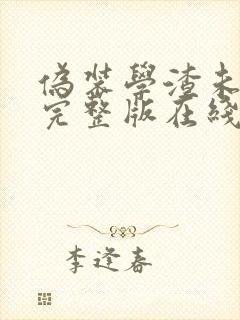 偽装學渣未
完整版在綫
李逢春